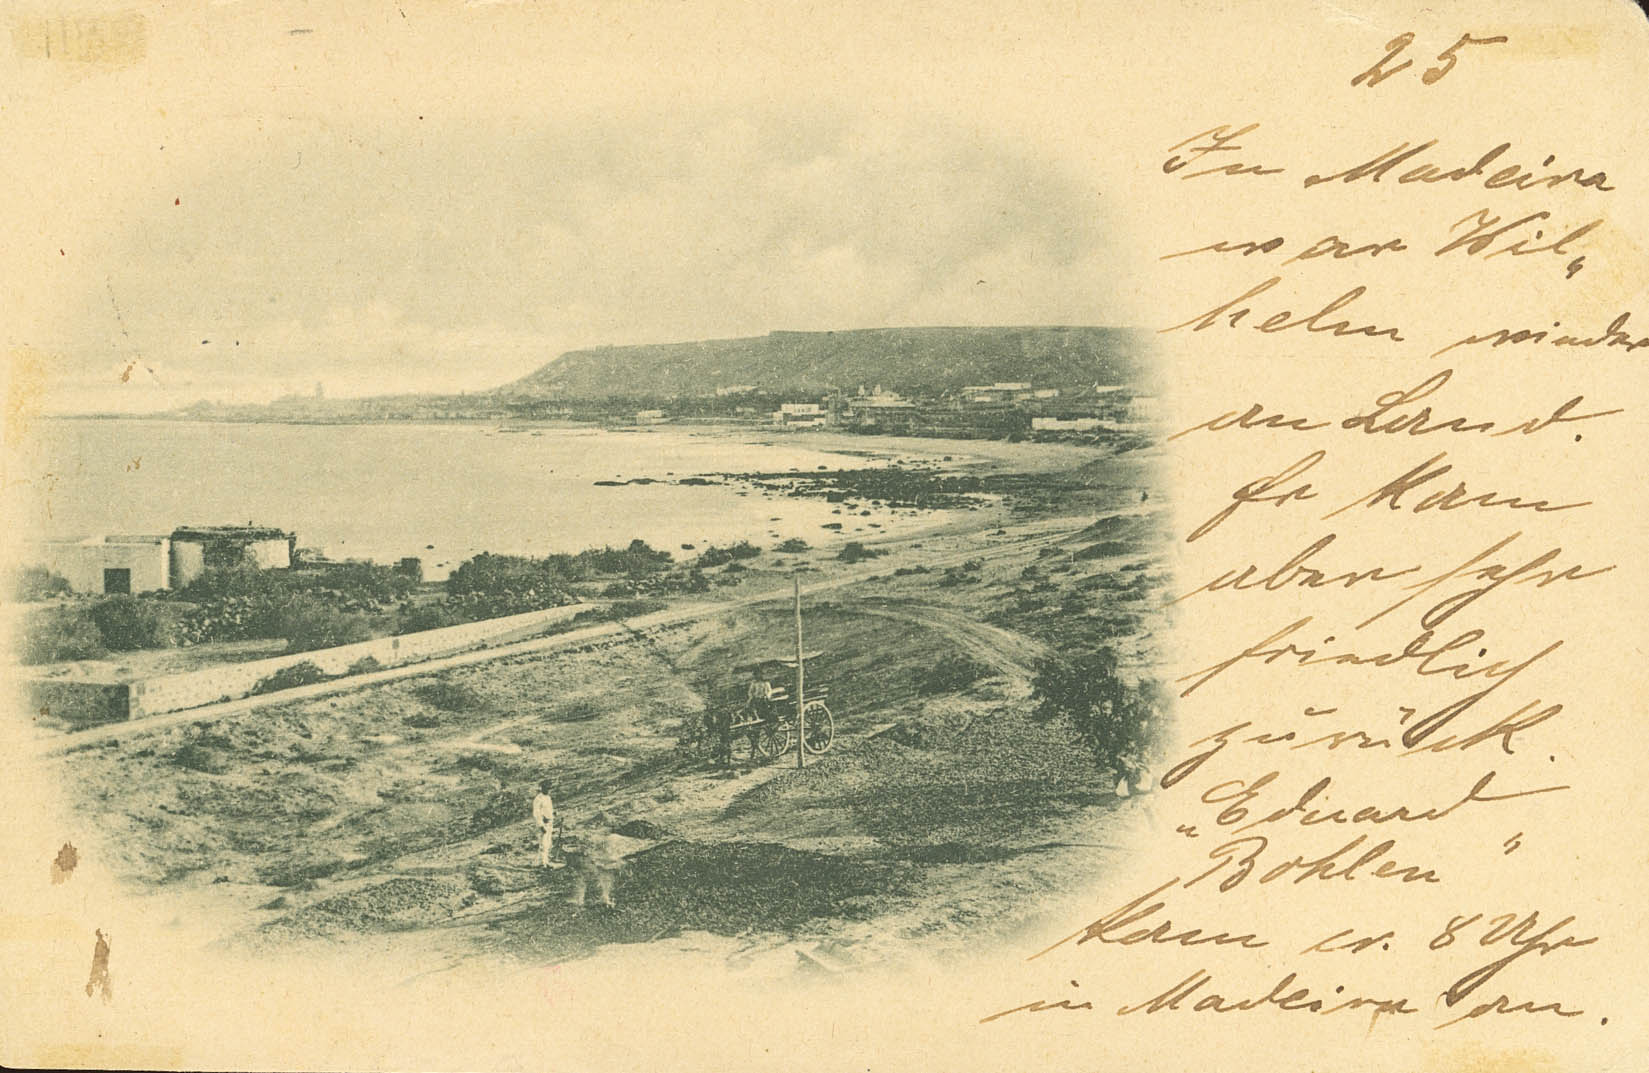 25
In Madeira
war Wil„
helm wieder
an Land.
Er kam
aber sehr
friedlich
zurück.
„Eduard
Bohlen"
kam ca. 8 Uhr
in Madeira an.